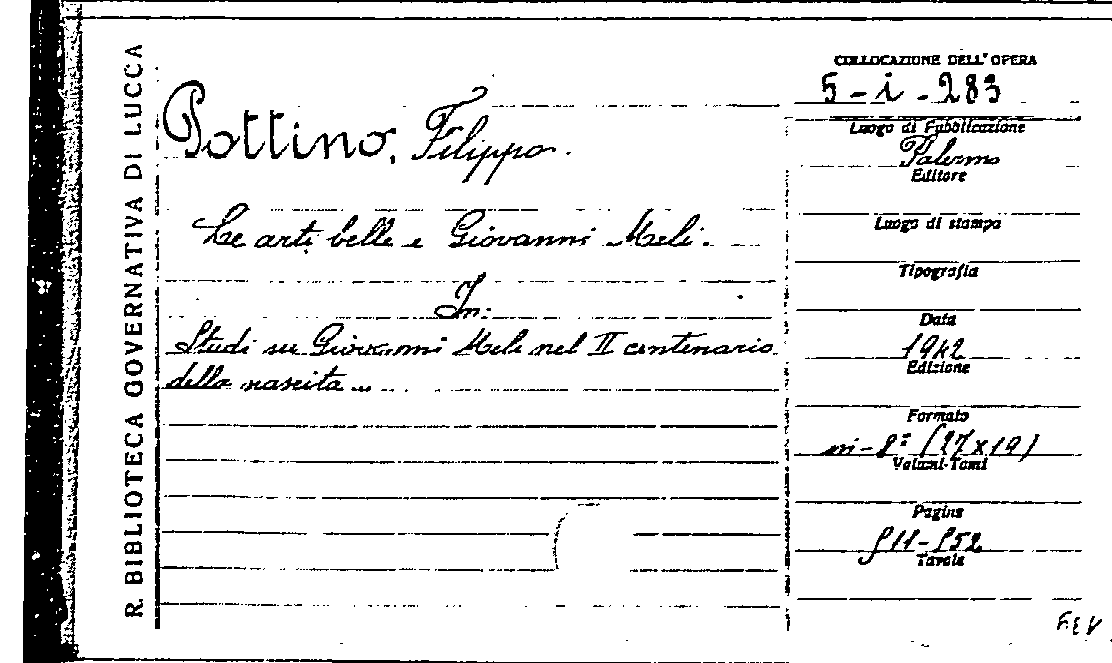 R. BIBLIOTECA GOVERNATIVA DI LUCCA
Pottino, Filippo.
Le arti belle e Giovanni Meli.
In:
Studi su Giovanni Meli nel II centenario
della nascita...
COLLOCAZIONE DELL'OPERA
5-i-283
Luogo di Pubblicazione
Palermo
Editore
Luogo di stampa
Tipografia
Data
1942
Edizione
Formato
in-8° (27x19)
Volumi-Tomi
Pagine
511-552
Tavole